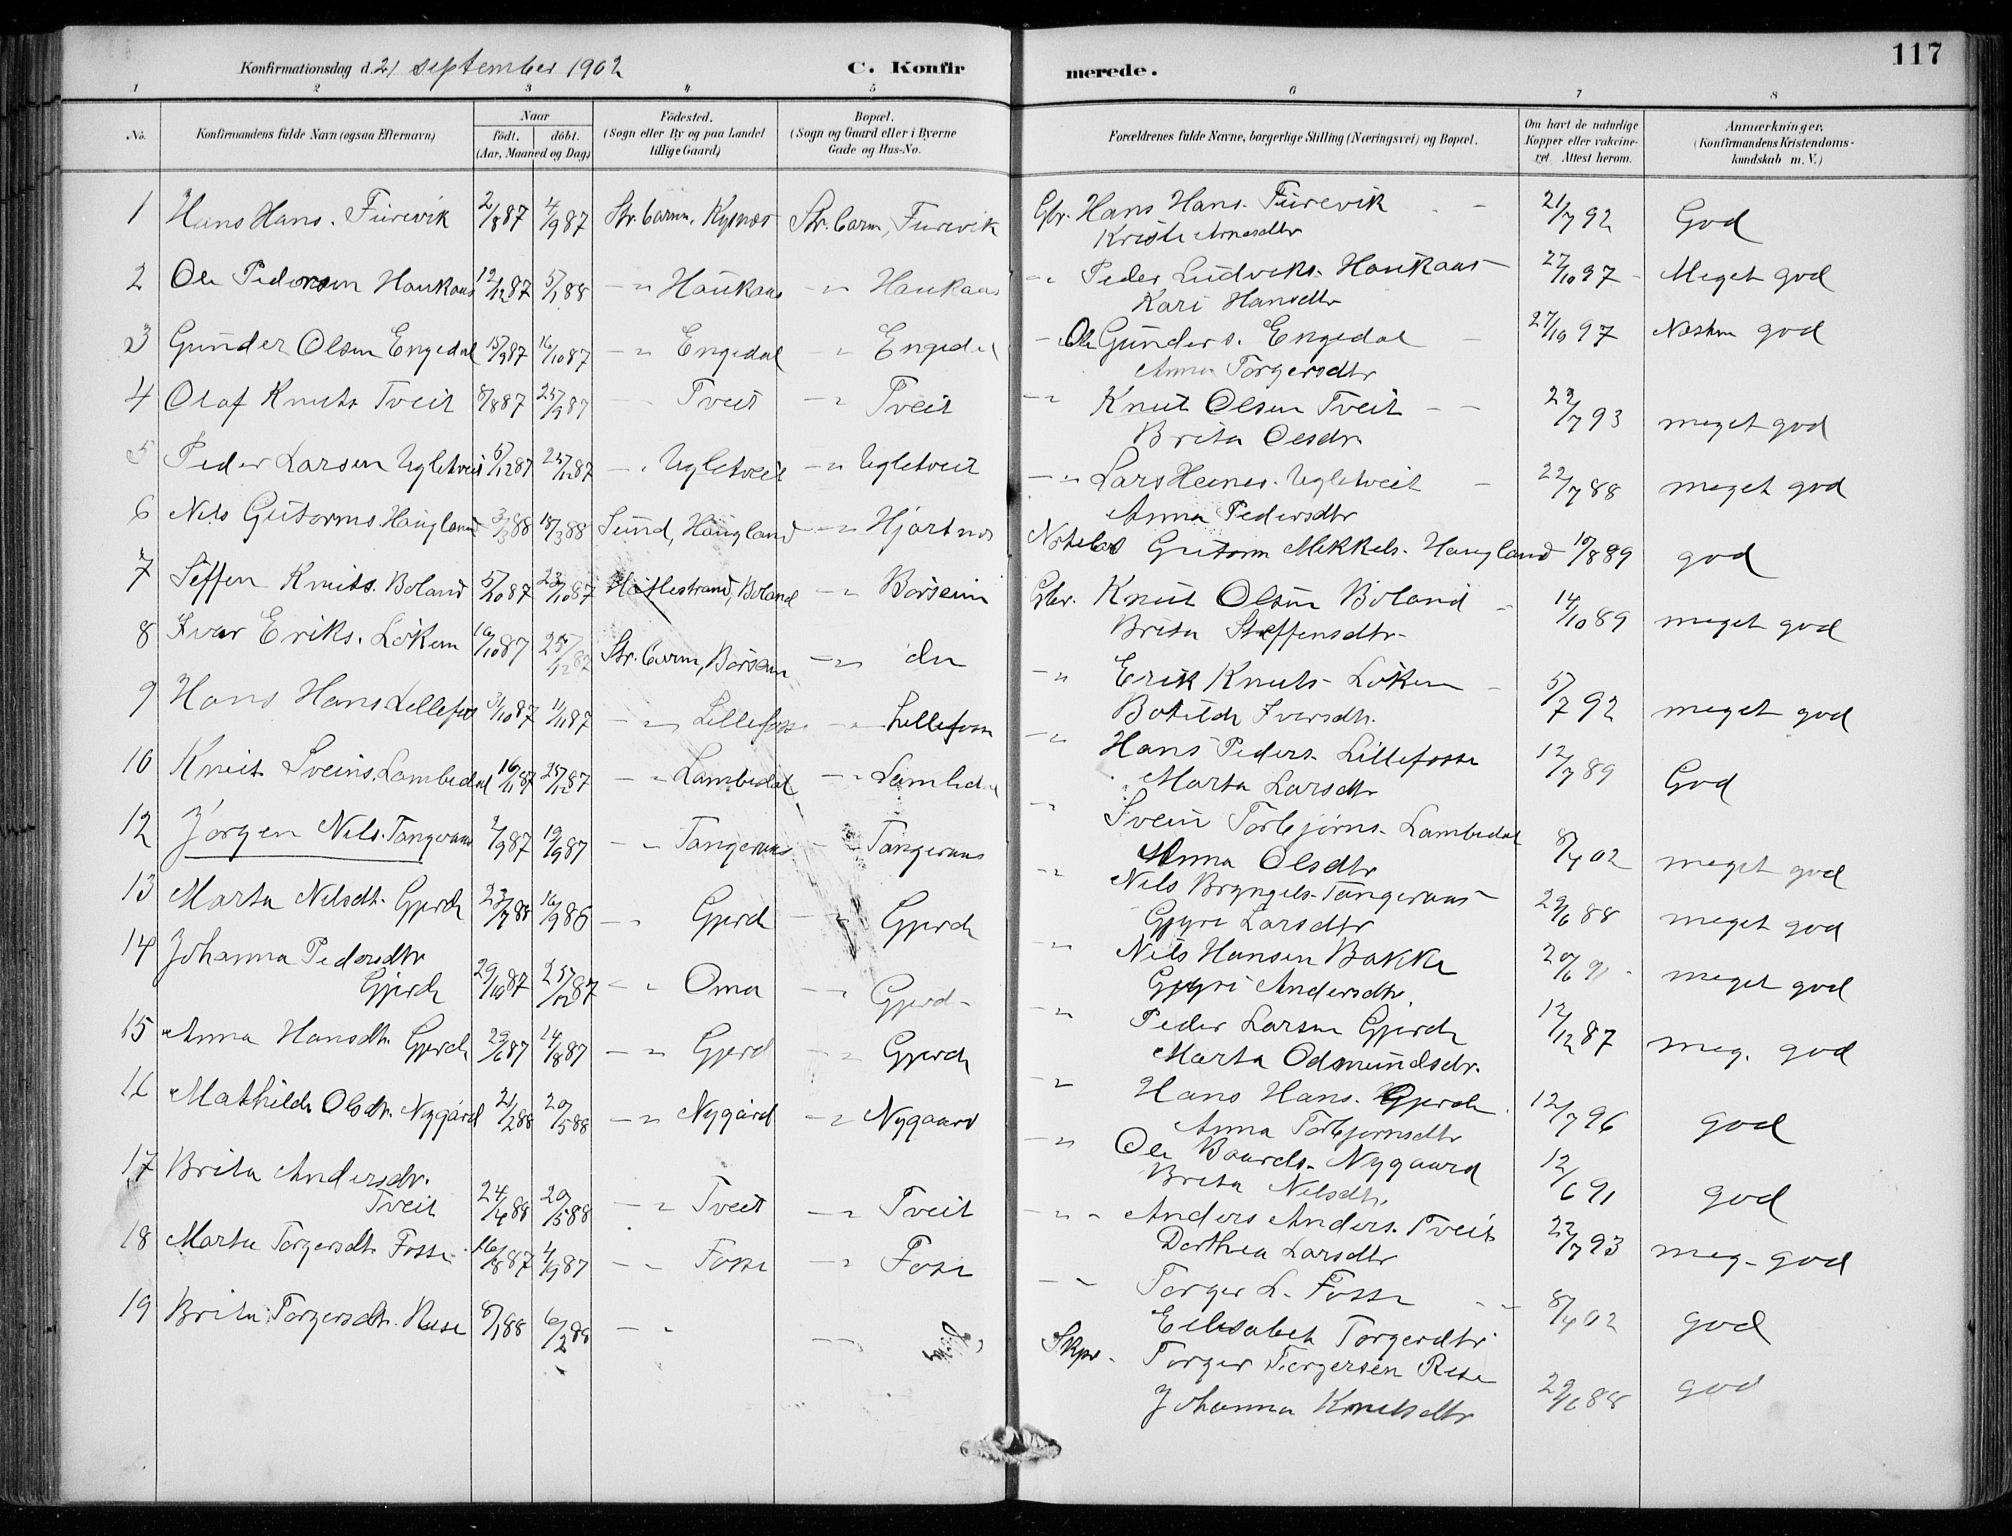 117
Konfirmationsdag d. 21 september 1902 C. Konfirmerede.
1 2 3 4 5 6 7 8
No. Konfirmandens fulde Navn (ogsaa Efternavn) Naar født. døbt. (Aar, Maaned og Dag) Födested. (Sogn eller By og paa Landet tillige Gaard) Bopæl. (Sogn og Gaard eller i Byerne Gade og Hus-No. Forældrenes fulde Navne, borgerlige Stilling (Næringsvei) og Bopæl. Om havt de naturlige Kopper eller vakcineret. Attest herom. Anmærkninger. (Konfirmandens Kristendomskundskab m. V.)
1 Hans Hans. Furevik 2/8 87 4/9 87 Str.barm, Kysnæs Str. barm, Furevik Gbr. Hans Hans. Furevik 21/7 92 God
Kristi Arnesdtr
2 Ole Pedersen Haukaas 12/12 87 5/1 88 - " Haukaas - " Haukaas - " Peder Ludviks. Haukaas 27/10 97 Meget god
Kari Hansdtr
3 Gunder Olsen Engedal 15/9 87 16/10 87 - " Engedal - " Engedal - " Ole Gunders. Engedal 27/10 97 Næsten god
Anna Torgersdtr
4 Olaf Knuts Tveit 8/8 87 25/9 87 - " Tveit - " Tveit - " Knut Olsen Tveit 29/7 93 meget god
Brita Olsdr.
5 Peder Larsen Ugletveit 5/12 87 25/12 87 - " Ugletveit - " Ugletveit - " Lars Heines. Ugletveit 22/7 88 meget god
Anna Pedersdtr
6 Nils Gutorms Haugland 3/3 88 18/3 88 Sund, Haugland - " Hjartnes Guttorm Mikkels. Haugland 10/8 89 god
7 Seffen Knuts. Boland 5/10 87 23/10 87 Hatlestrand, Boland - " Børseim Gbr. Knut Olsen Boland 14/10 89 meget god
Brita Steffensdtr
8 Ivar Eriks. Løkem 16/10 87 25/12 87 Str. barm, Børseim - " do - " Erik Knuts. Løkem 5/7 92 meget god
Botilde Iversdtr.
9 Hans Hans Lillefoss 31/10 87 11/11 87 - " Lillefoss - " Lillefosse - " Hans Peders. Lillefosse 12/7 89 God
Marta Larsdtr
10 Knut Sveins. Lambedal 16/11 87 25/12 87 - " Lambedal - " Lambedal - " Svein Torbjørns. Lambedal 8/4 02 meget god
Anna Olsdtr
12 Jørgen Nils. Tangeraas 2/9 87 19/9 87 - " Tangeraas - " Tangeraas - " Nils Bryngels. Tangeraas 29/6 88 meget god
Gjyri Larsdtr
13 Marta Nilsdtr. Gjerde 23/7 88 16/9 86 - " Gjerd - " Gjerde - " Nils Hansen Bakke 20/6 91 meget god
Gjyri Andersdtr.
14 Johanna Pedersdtr 29/10 87 25/12 87 - " Oma - " Gjerd - " Peder Larsen Gjerde 12/12 87 meg. god
Gjerde Marta Odmundsdr.
15 Anna Hansdtr. Gjerde 29/6 87 14/8 87 - " Gjerd - " Gjerde - " Hans Hans. Gjerde 12/7 96 god
Anna Torbjørnsdtr
16 Mathilde Olsdtr. Nygård 21/2 88 20/5 88 - " Nygård - " Nygaard - " Ole Baards. Nygaard 12/6 91 god
Brita Nilsdtr.
17 Brita Andersdr. 24/4 88 20/5 88 - " Tveit - " Tveit - " Anders Anders. Tveit 22/7 93 meg. god
Tveit Dorthea Larsdtr
18 Marta Torgersdt. Fosse 16/8 87 4/9 87 - " Fosse - " Fosse - " Torger L. Fosse 8/4 02 god
Elisabet Torgersdtr
19 Brita Torgersdtr. Rese 8/1 88 6/2 88 - " Skpr. Torger Torgersen Rese 29/6 88 god
Johanna Knutsdtr